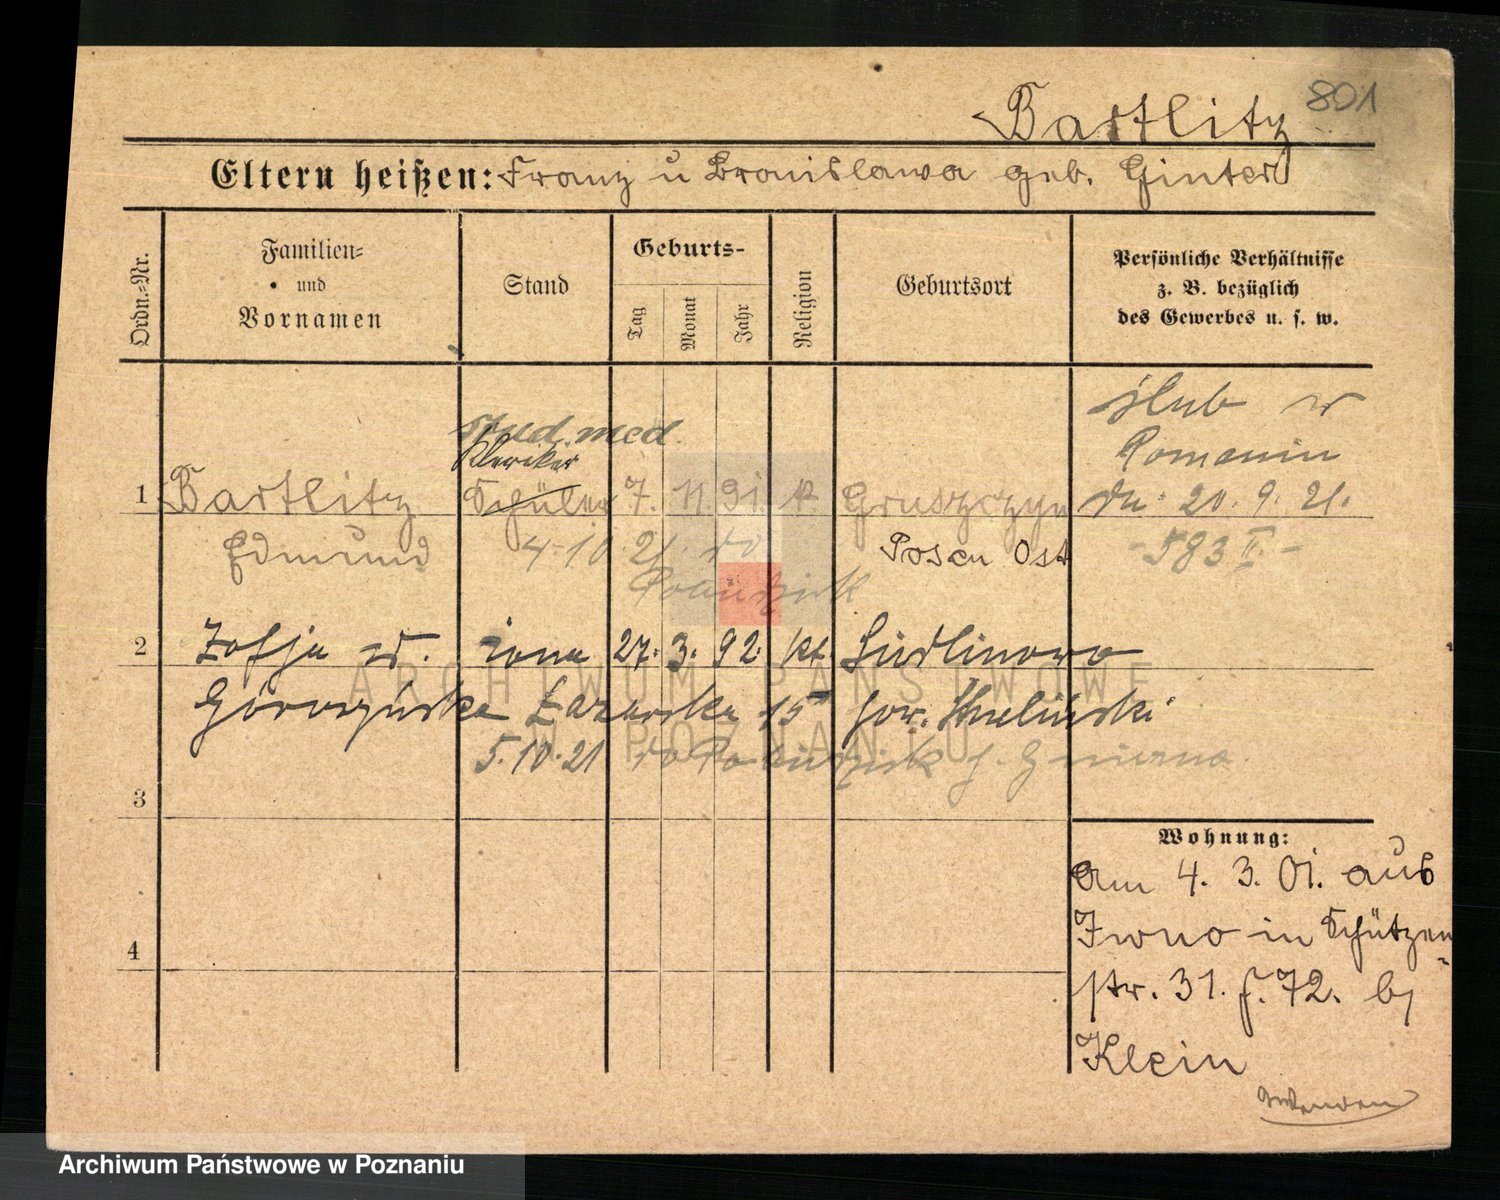 801
Bartlitz
Eltern heißen: Franz u Bronislawa geb. Ginter
Ordn.-Nr.
Familien-
und
Vornamen
Stand
Geburts-
Tag
Monat
Jahr
Religion
Geburtsort
Persönliche Verhältnisse
z. B. bezüglich
des Gewerbes u. s. w.
ślub w
stud. med.
Kleriker
1 Bartlitz Schüler 7. 11. 91. k. Gruszczyn dn. 20. 9. 21.
Edmund 4.10.21. do Posen Ost -583 II.-
2 Zofja żona 27. 3. 92. kt.
Łazarska 15
5.10.21 do
3
Wohnung:
am 4. 3. 01. aus
Iwno in Schützen-
str. 31. f. 72. bj
4
Klein
wenden
ARCHIWUM PAŃSTWOWE
W POZNANIU
Archiwum Państwowe w Poznaniu